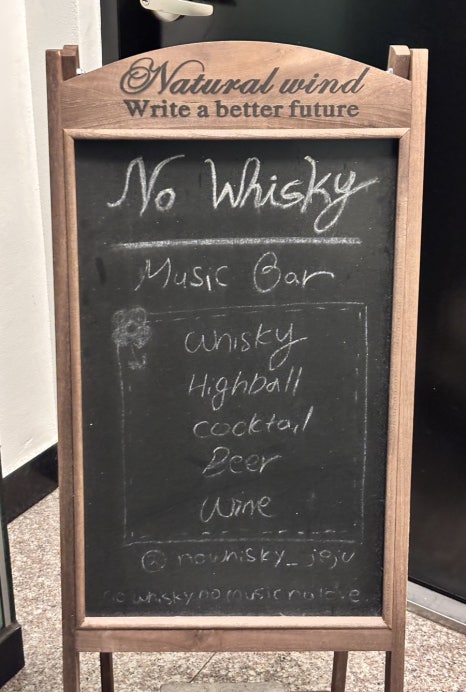 Natural wind
Write a better future
No Whisky
Music Bar
Whisky
Highball
cocktail
Beer
Wine
nowhisky_jeju
no whisky no music no love